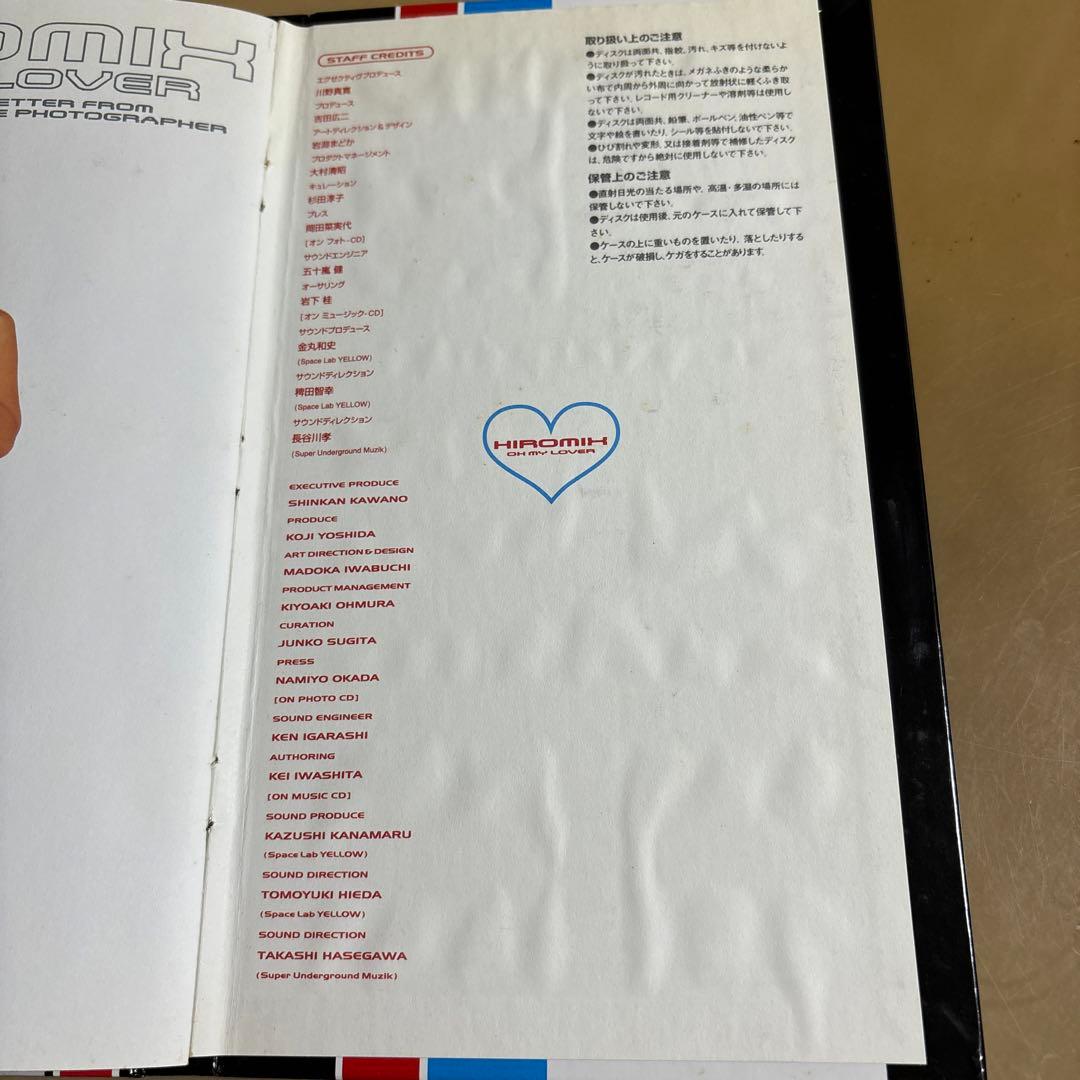 OMIX
LOVER
ETTER FROM
E PHOTOGRAPHER
STAFF CREDITS
エグゼクティヴプロデュース
川野真寛
プロデュース
吉田広二
アートディレクション&デザイン
岩淵まどか
プロダクトマネージメント
大村清昭
キュレーション
杉田淳子
プレス
岡田菜実代
[オン フォト-CD]
サウンドエンジニア
五十嵐 健
オーサリング
岩下 桂
[オン ミュージック-CD]
サウンドプロデュース
金丸和史
(Space Lab YELLOW)
サウンドディレクション
稗田智幸
(Space Lab YELLOW)
サウンドディレクション
長谷川孝
(Super Underground Muzik)
EXECUTIVE PRODUCE
SHINKAN KAWANO
PRODUCE
KOJI YOSHIDA
ART DIRECTION & DESIGN
MADOKA IWABUCHI
PRODUCT MANAGEMENT
KIYOAKI OHMURA
CURATION
JUNKO SUGITA
PRESS
NAMIYO OKADA
[ON PHOTO CD]
SOUND ENGINEER
KEN IGARASHI
AUTHORING
KEI IWASHITA
[ON MUSIC CD]
SOUND PRODUCE
KAZUSHI KANAMARU
(Space Lab YELLOW)
SOUND DIRECTION
TOMOYUKI HIEDA
(Space Lab YELLOW)
SOUND DIRECTION
TAKASHI HASEGAWA
(Super Underground Muzik)
取り扱い上のご注意
●ディスクは両面共、指紋、汚れ、キズ等を付けないよ
うに取り扱って下さい。
●ディスクが汚れたときは、メガネふきのような柔らか
い布で内周から外周に向かって放射状に軽くふき取
って下さい。レコード用クリーナーや溶剤等は使用し
ないで下さい。
●ディスクは両面共、鉛筆、ボールペン、油性ペン等で
文字や絵を書いたり、シール等を貼付しないで下さい。
●ひび割れや変形、又は接着剤等で補修したディスク
は、危険ですから絶対に使用しないで下さい。
保管上のご注意
●直射日光の当たる場所や、高温・多湿の場所には
保管しないで下さい。
●ディスクは使用後、元のケースに入れて保管して下
さい。
●ケースの上に重いものを置いたり、落としたりする
と、ケースが破損し、ケガをすることがあります。
HIROMIX
OH MY LOVER